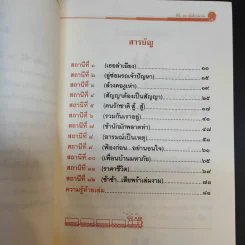 สารบัญ
สถานีที่ ๑ (เธอลำเอียง) ๑๑
สถานีที่ ๒ (คู่ซ่อมรถเจ้าปัญหา) ๑๕
สถานีที่ ๓ (ล้วงคองูเห่า)
สถานีที่ ๔ (สัญญาต้องเป็นสัญญา)
สถานีที่ ๕ (คนรักชาติ สู้...สู้) ๓๕
สถานีที่ ๖ (รวมกันเราอยู่)
สถานีที่ ๗ (ชำนักมักพลาดท่า) ๔๗
สถานีที่ ๘ (อารมณ์เป็นเหตุ)
สถานีที่ ๙ (ฟ้องก่อน...อย่านอนใจ)
สถานีที่ ๑๐ (เพื่อนบ้านมหาภัย)
สถานีที่ ๑๑ (ราคาชีวิต)
สถานีที่ ๑๒ (ช้าช้า...เสียพร้าเล่มงาม) ๗๑
ความรู้ท้ายเล่ม ๘๑